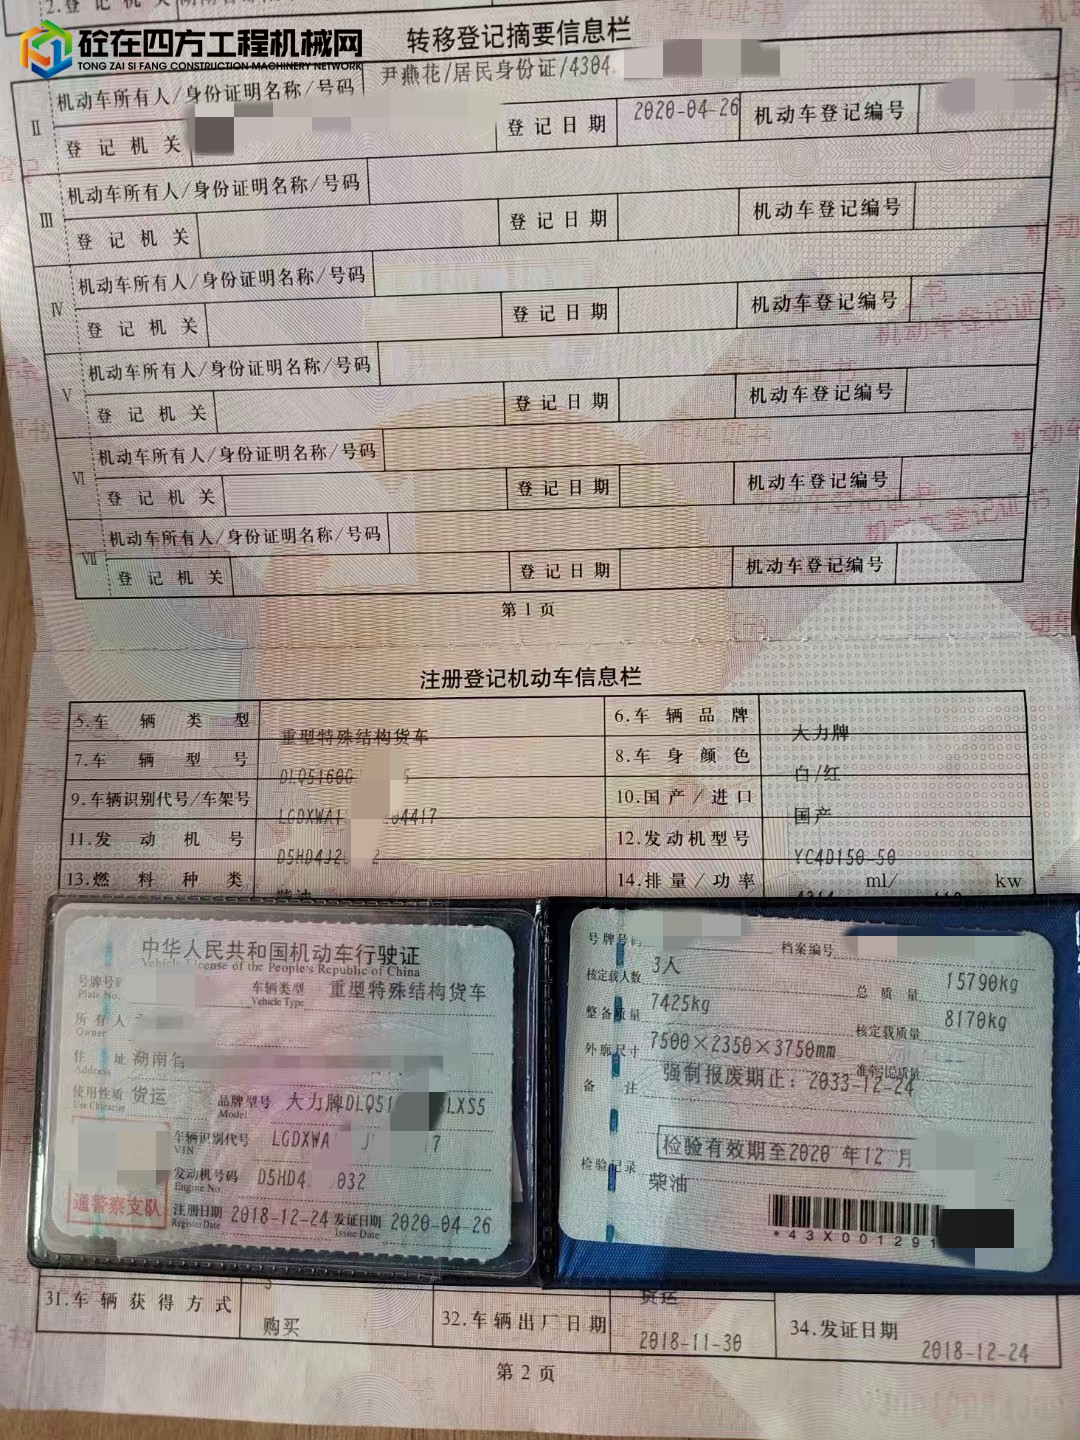 砼在四方工程机械网
TONG ZAI SI FANG CONSTRUCTION MACHINERY NETWORK
转移登记摘要信息栏
II 机动车所有人/身份证明名称/号码 尹燕花/居民身份证/4304
登记机关 登记日期 2020-04-26 机动车登记编号
III 机动车所有人/身份证明名称/号码
登记机关 登记日期 机动车登记编号
IV 机动车所有人/身份证明名称/号码
登记机关 登记日期 机动车登记编号
V 机动车所有人/身份证明名称/号码
登记机关 登记日期 机动车登记编号
VI 机动车所有人/身份证明名称/号码
登记机关 登记日期 机动车登记编号
VII 机动车所有人/身份证明名称/号码
登记机关 登记日期 机动车登记编号
第1页
注册登记机动车信息栏
5.车辆类型 重型特殊结构货车 6.车辆品牌 大力牌
7.车辆型号 DLQ5160G 5 8.车身颜色 白/红
9.车辆识别代号/车架号 LGDXWA1 4417 10.国产/进口 国产
11.发动机号 D5HD4J20 2 12.发动机型号 YC4D150-50
13.燃料种类 柴油 14.排量/功率 ml/ kw
中华人民共和国机动车行驶证
Vehicle License of the People's Republic of China
号牌号码
Plate No.
车辆类型 重型特殊结构货车
Vehicle Type
所有人
Owner
住址 湖南省
Address
使用性质 货运
Use Character
品牌型号 大力牌DLQ516 LXS5
Model
车辆识别代号 LGDXWA J 7
VIN
发动机号码 D5HD4 032
Engine No.
通警察支队
注册日期 2018-12-24 发证日期 2020-04-26
Register Date Issue Date
号牌号码 档案编号
核定载人数 3人 总质量 15790kg
整备质量 7425kg 核定载质量 8170kg
外廓尺寸 7500×2350×3750mm 准牵引总质量
备注 强制报废期止：2033-12-24
检验有效期至2020年12月
检验记录
柴油
*43X001291
31.车辆获得方式 购买 32.车辆出厂日期 2018-11-30 34.发证日期 2018-12-24
货运
第2页